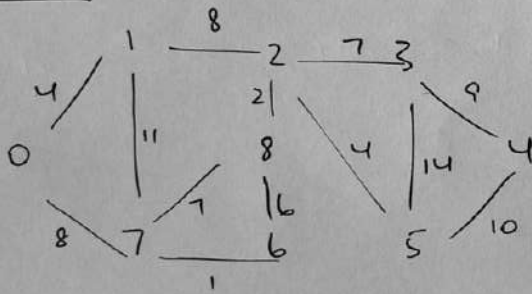 8
1 2 7 3
4 2 9
0 11 8 4 14 4
7 6
8 7 6 5 10
1